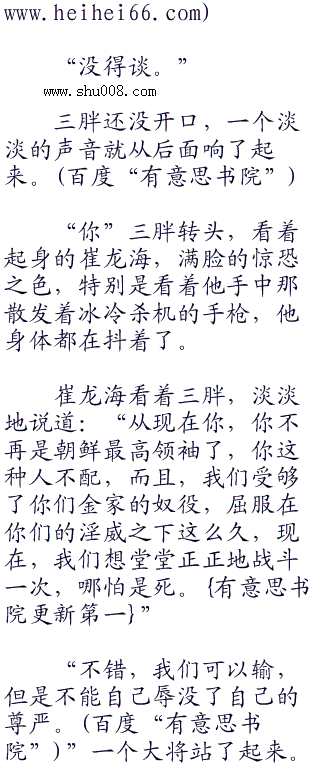 www.heihei66.com)
“没得谈。”
www.shu008.com
三胖还没开口，一个淡
淡的声音就从后面响了起
来。(百度“有意思书院”)
“你”三胖转头，看着
起身的崔龙海，满脸的惊恐
之色，特别是看着他手中那
散发着冰冷杀机的手枪，他
身体都在抖着了。
崔龙海看着三胖，淡淡
地说道：“从现在你，你不
再是朝鲜最高领袖了，你这
种人不配，而且，我们受够
了你们金家的奴役，屈服在
你们的淫威之下这么久，现
在，我们想堂堂正正地战斗
一次，哪怕是死。{有意思书
院更新第一}”
“不错，我们可以输，
但是不能自己辱没了自己的
尊严。(百度“有意思书
院”)”一个大将站了起来。